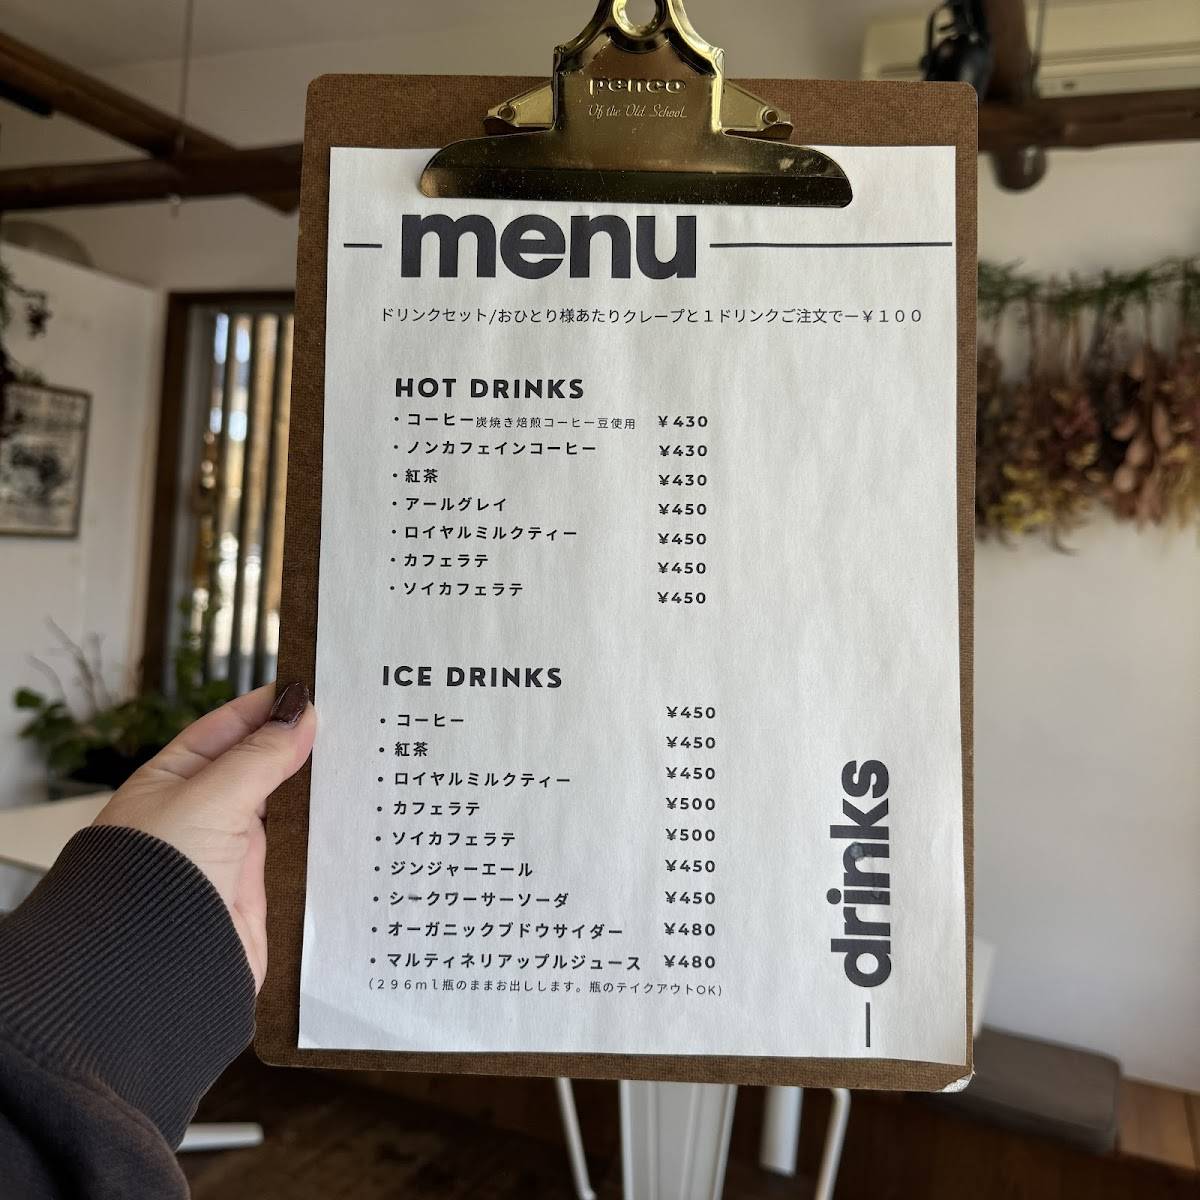 penco
Of the Old School
menu
ドリンクセット/おひとり様あたりクレープと１ドリンクご注文でー￥１００
HOT DRINKS
・コーヒー炭焼き焙煎コーヒー豆使用 ￥430
・ノンカフェインコーヒー ¥430
・紅茶 ¥430
・アールグレイ ¥450
・ロイヤルミルクティー ¥450
・カフェラテ ¥450
・ソイカフェラテ ¥450
ICE DRINKS
• コーヒー ¥450
• 紅茶 ¥450
• ロイヤルミルクティー ¥450
• カフェラテ ¥500
• ソイカフェラテ ¥500
• ジンジャーエール ¥450
• シークワーサーソーダ ¥450
• オーガニックブドウサイダー ¥480
• マルティネリアップルジュース ¥480
（２９６ｍｌ瓶のままお出しします。瓶のテイクアウトOK）
drinks